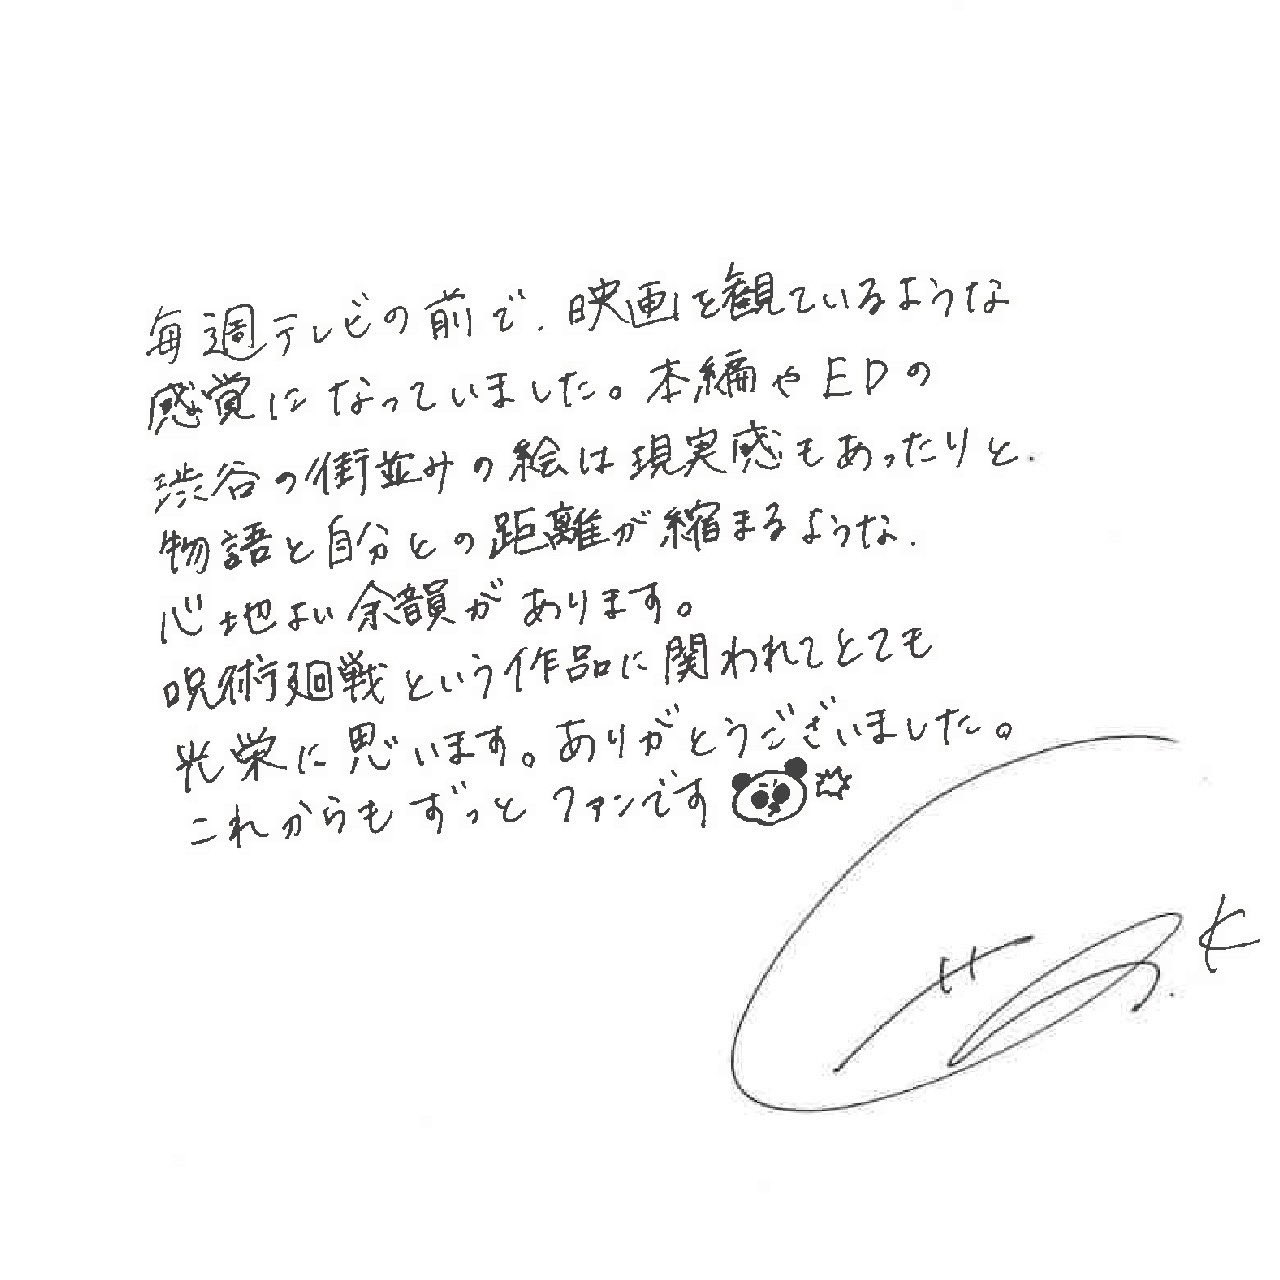 毎週テレビの前で、映画を観ているような
感覚になっていました。本編やEDの
渋谷の街並みの絵は現実感もあったりと、
物語と自分との距離が縮まるような、
心地よい余韻があります。
呪術廻戦という作品に関われてとても
光栄に思います。ありがとうございました。
これからもずっとファンです